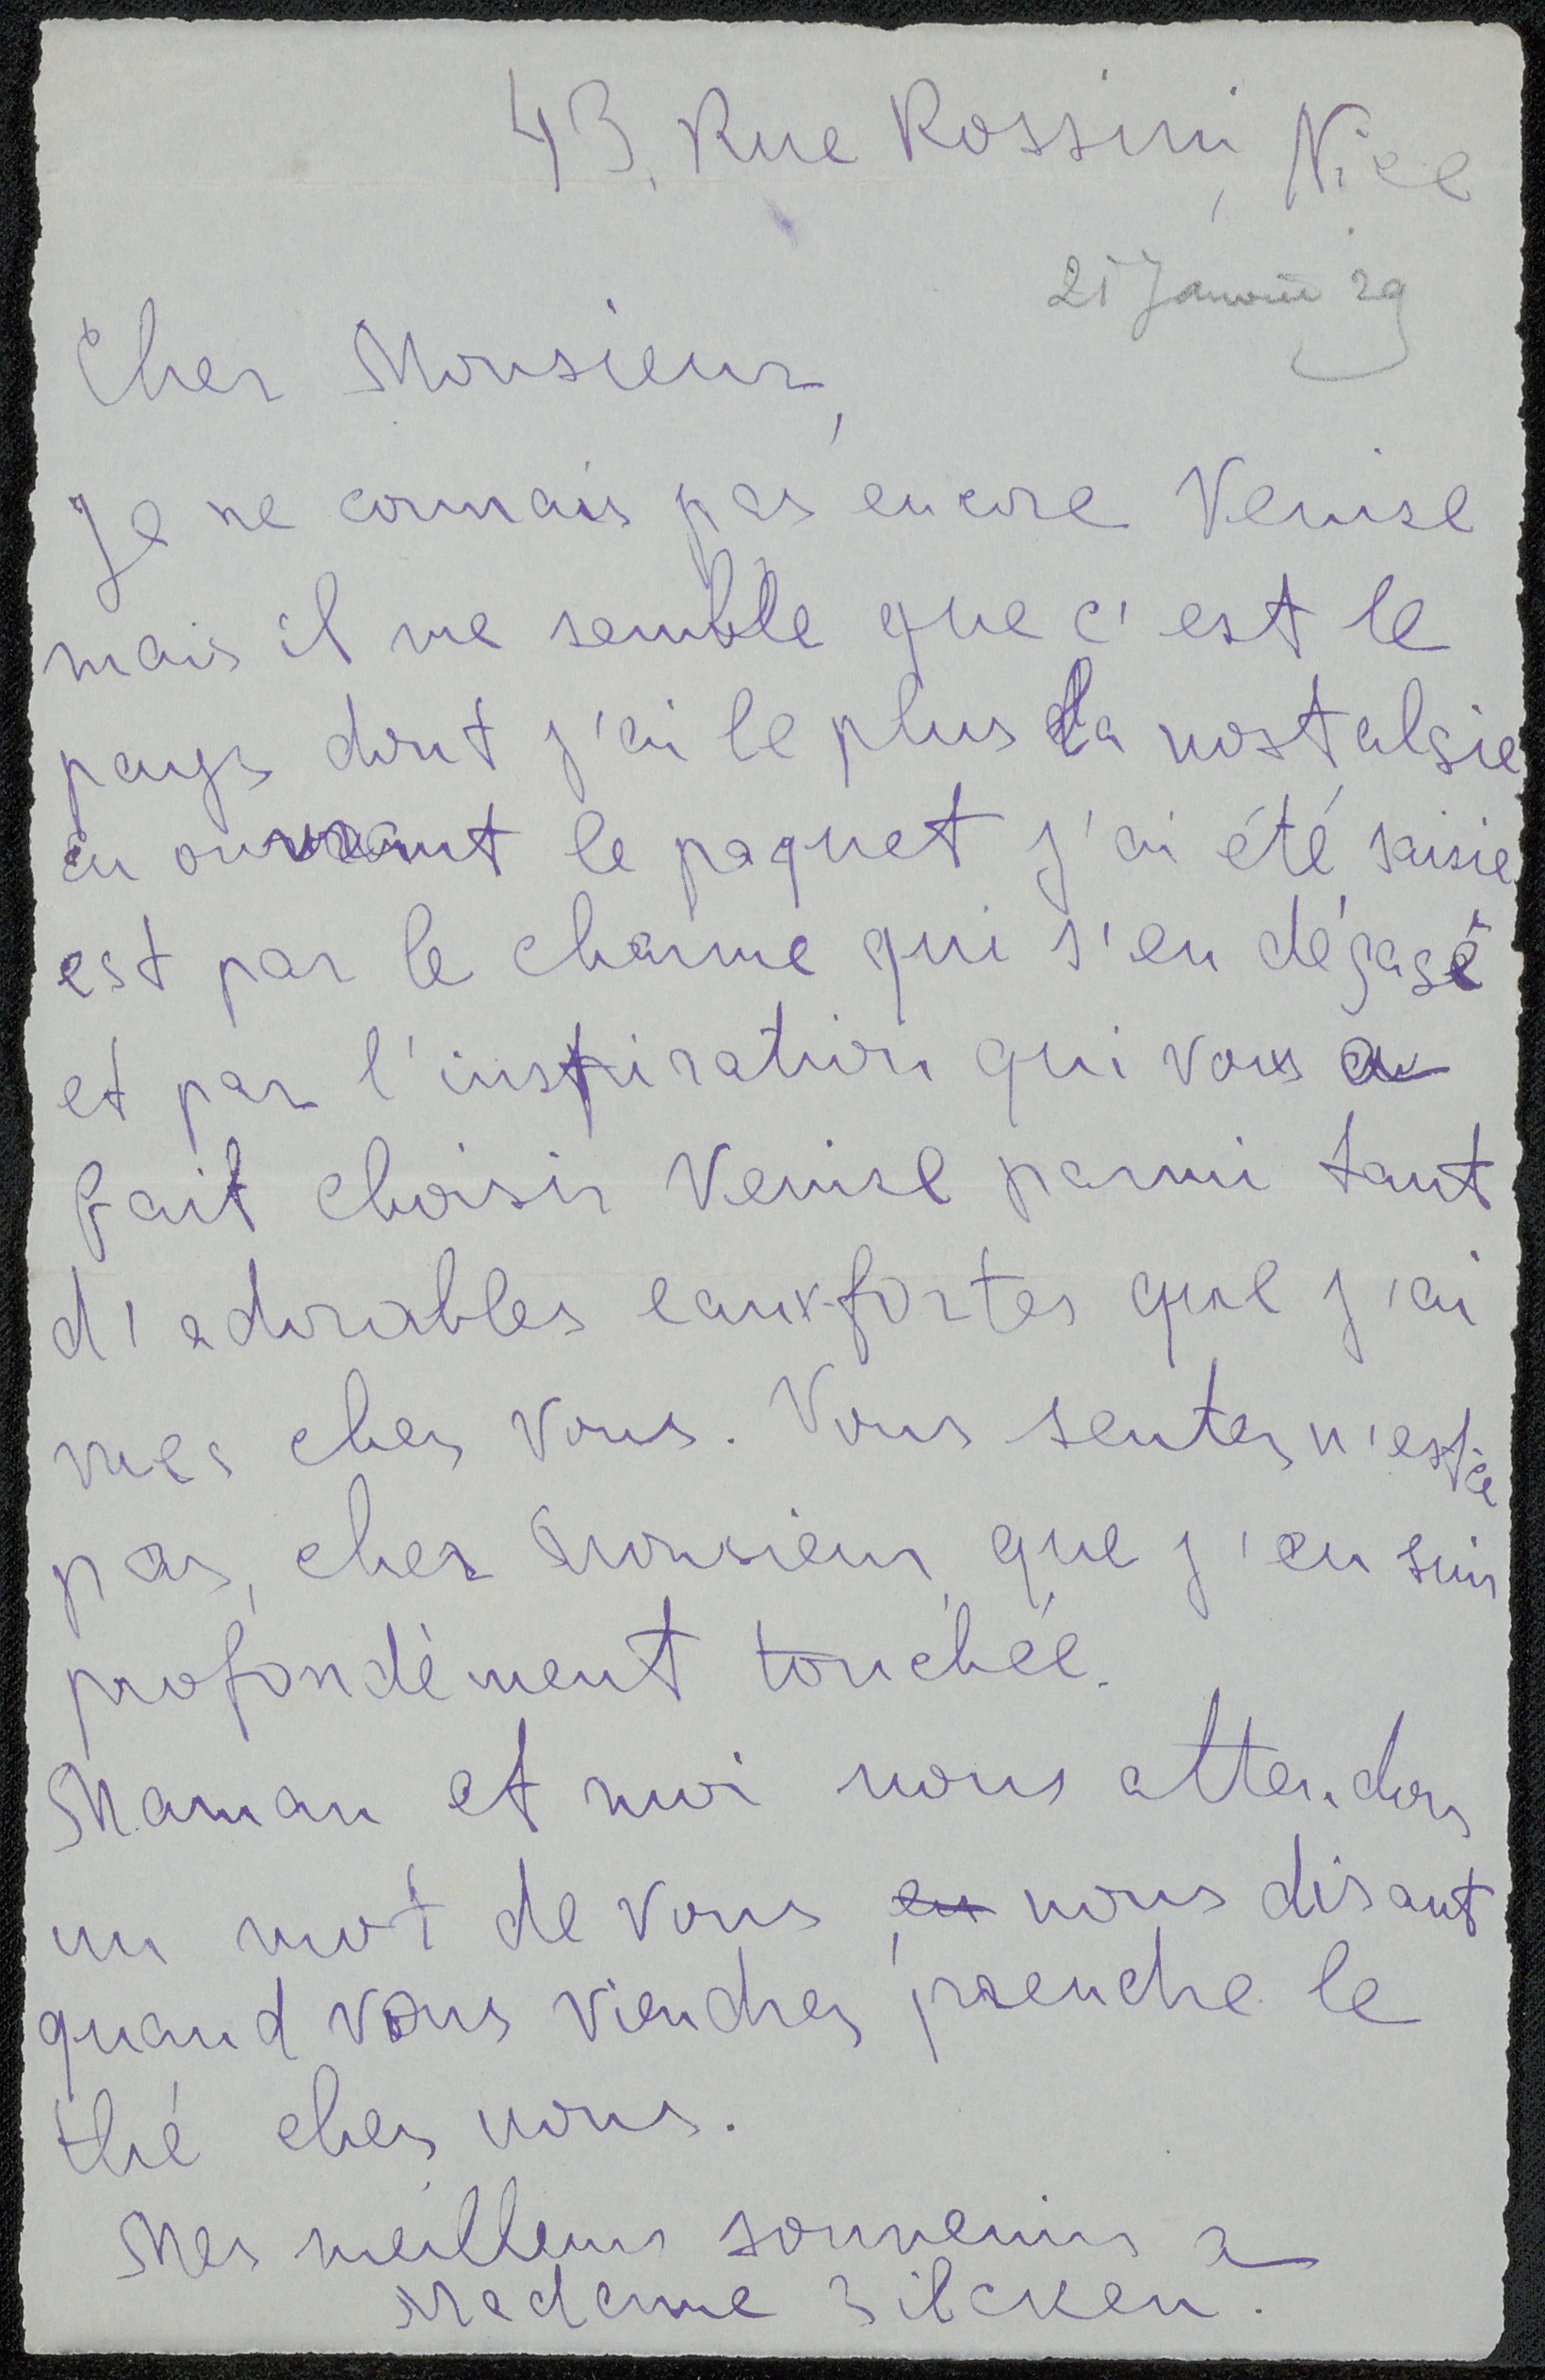 43, Rue Rossini, Nice
21 Janvier 29
Cher Monsieur,
Je ne connais pas encore Venise
mais il me semble que c'est le
pays dont j'ai le plus la nostalgie,
en ouvrant le paquet j'ai été saisie
est par le charme qui s'en dégage
et par l'inspiration qui vous a
fait choisir Venise parmi tant
d'adorables eaux-fortes que j'ai
vues chez vous. Vous sentez n'est-ce
pas, cher Monsieur, que j'en suis
profondément touchée.
Maman et moi nous attendons
un mot de vous, en nous disant
quand vous viendrez prendre le
thé chez nous.
Mes meilleurs souvenirs a
Madame Zilcken.